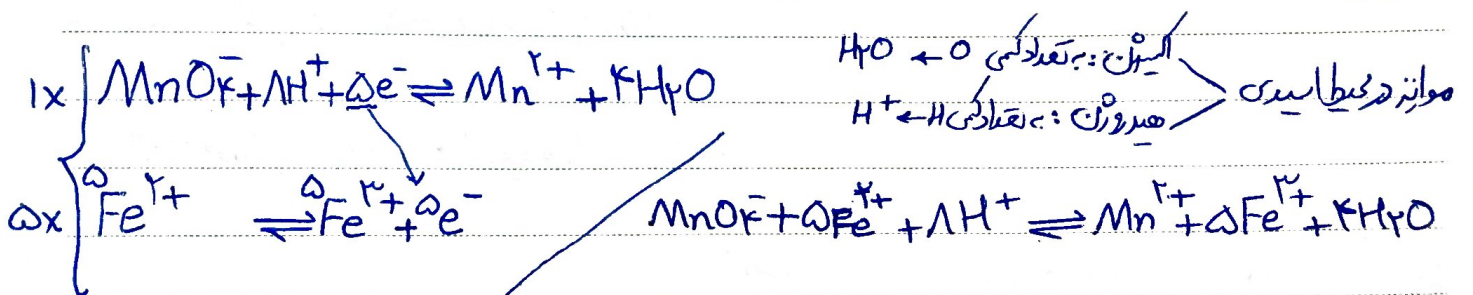 موازنه در محیط اسیدی
اکسیژن: به تعداد کمی O → H۲O
هیدروژن: به تعداد کمی H → H⁺
۱x MnO۴⁻ + ۸H⁺ + ۵e⁻ ⇌ Mn²⁺ + ۴H۲O
۵x ۵Fe²⁺ ⇌ ۵Fe³⁺ + ۵e⁻
MnO۴⁻ + ۵Fe²⁺ + ۸H⁺ ⇌ Mn²⁺ + ۵Fe³⁺ + ۴H۲O